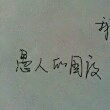 愚人的国度